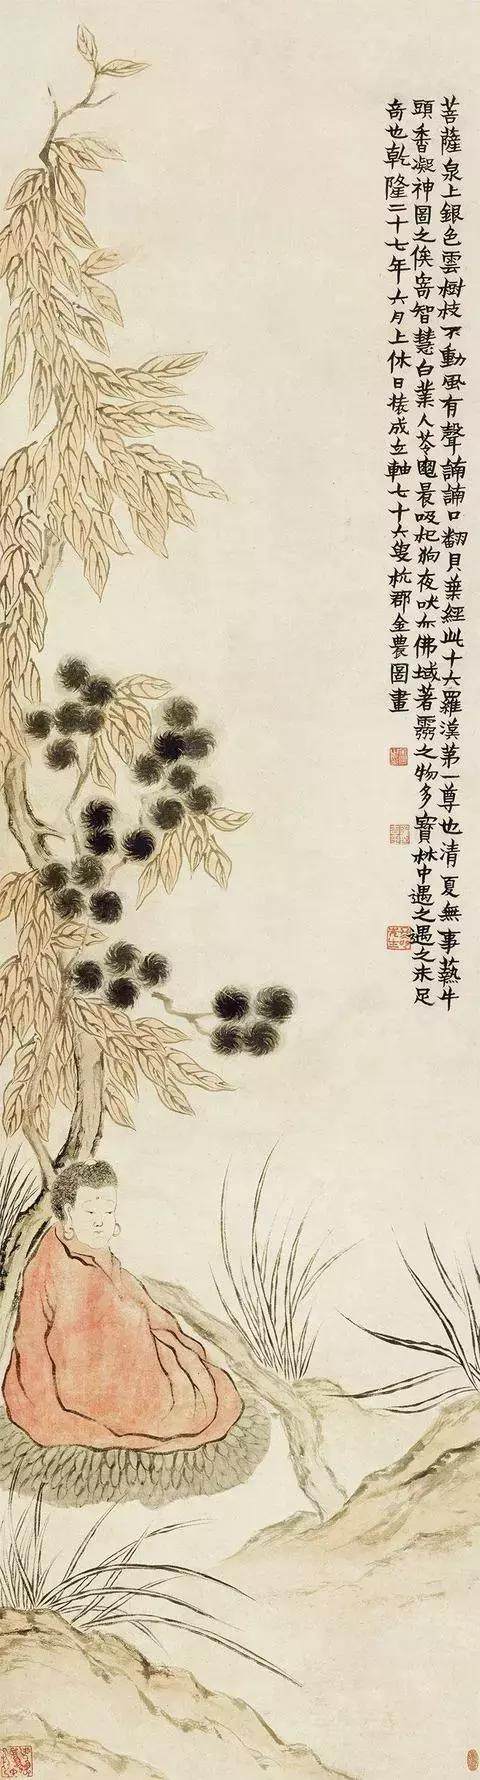 菩薩泉上銀色雲樹枝不動風有聲諵諵口翻貝葉經此十六羅漢第一尊也清夏無事爇牛
頭香凝神圖之俟寄智慧白業人苓龜晨吸杞狗夜吠亦佛域著靈之物多寶林中遇之遇之未足
奇也乾隆二十七年六月上休日裱成立軸七十六叟杭郡金農圖畫